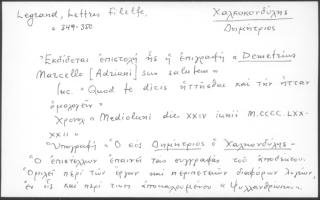 Legrand, Lettres Filelfe,
σ 349-350
Χαλκοκονδύλης
Δημήτριος
"Εκδίδεται ἐπιστολὴ ἧς ἡ ἐπιγραφὴ « Demetrius
Marcello [Adriani] suo salutem »
Inc. "Quod te dicis ἡττῆσθαι καὶ τὴν ἧτταν
ὁμολογεῖν"
Χρονολ « Mediolani die XXIV iunii M.CCCC.LXX-
XXII »
"Υπογραφὴ « Ὁ σὸς Δημήτριος ὁ Χαλκονδύλης -
"Ὁ ἐπιστέλλων ἐπαινεῖ τὰς συγγραφὰς τοῦ ἀποδέκτου.
Ὁμιλεῖ περὶ τῶν ἔργων καὶ περιπετειῶν διαφόρων λογίων,
ἐν οἷς καὶ περί τινος ἀποκαλουμένου «